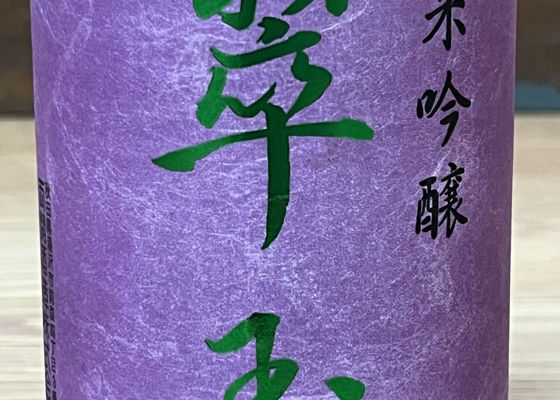 米吟醸
翠玉